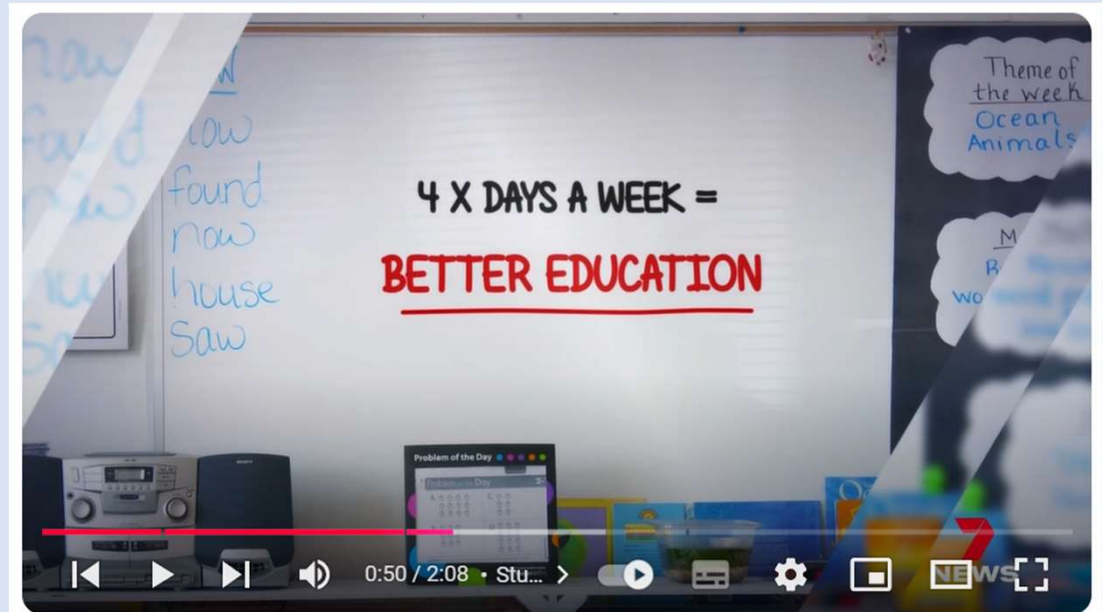 now
found
now
house
saw
4 X DAYS A WEEK =
BETTER EDUCATION
Theme of
the week
Ocean
Animals
M
Problem of the Day
Problem of the Day
0:50 / 2:08 • Stu...
7
NEWS